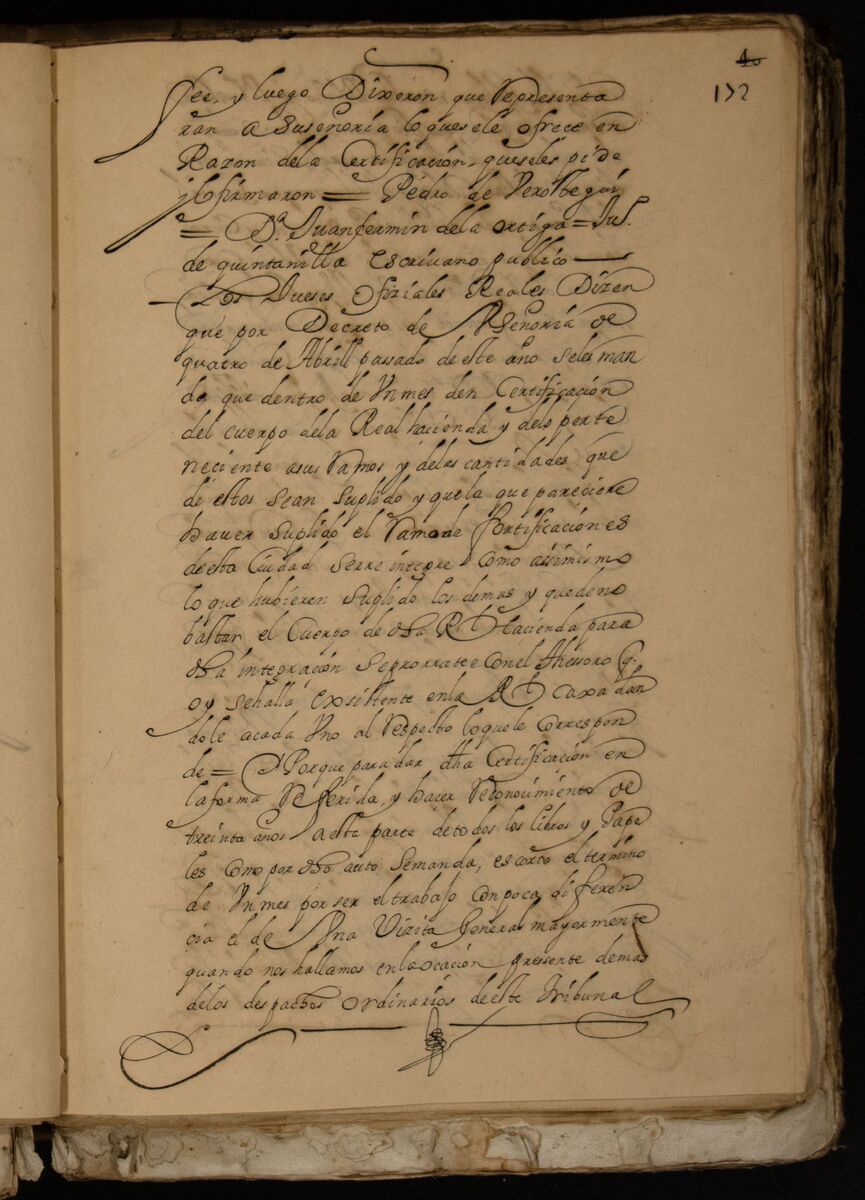 40
132
fee, y luego Dixeron que Representa
ran a Suseñoria loquesele ofrece en
Razon dela Certificación, queseles pide
ylofirmaron = Pedro de Veroztegui
= Dn. Juanfermin dela ortiga = Jul.
de quintanilla escrivano publico —
— Los Jueses Ofiziales Reales Dizen
que por Decreto de Vseñoria de
quatro de Abrill passado deeste año seles man
da que dentro de Vnmes den Certificación
del cuerpo dela Real hacienda y delo perte
neciente asus Ramos y delas cantidades que
de estos sean suplido y quela que pareciere
haver suplido el Ramode fortificaciones
deesta Ciudad serre integre como assimismo
lo que hubieren suplido los demas y quedeno
bastar el Cuerpo de dha Rl Hacienda para
dha integración seprorratee conel Thessoro q.
oy sehalla existente enla Rl caxa dan
dole acada Vno al Respecto loquele correspon
de = Y Porque para dar dha Certificación en
laforma Referida, y hacer Reconocimiento de
treinta años aesta parte detodos los libros y Pape
les como por dho auto semanda, es corto el termino
de Vnmes por ser el trabajo conpoca diferen
cia el de Vna Vizita General mayormente
quando nos hallamos enlaocación pressente demas
delos despachos ordinarios deeste tribunal